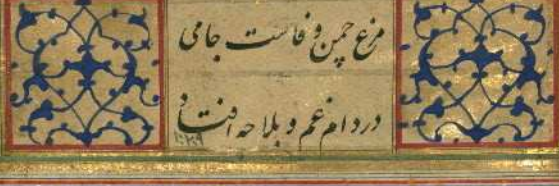 مرغ چمن وفاست جامی
در دام غم و بلا چه افتاد